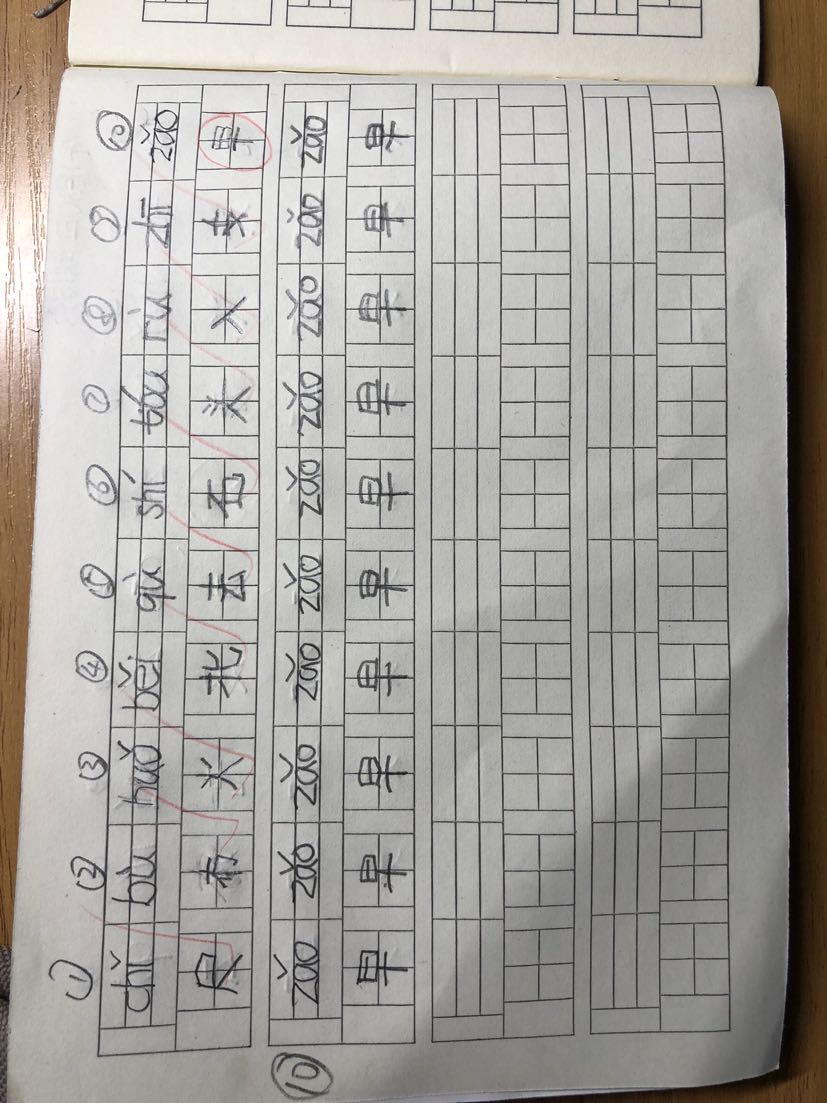 ① ② ③ ④ ⑤ ⑥ ⑦ ⑧ ⑨ ⑩
chǐ bù huǒ běi qù shí tóu rù zhī zǎo
尺 布 火 北 去 石 头 入 支 早
⑩ zǎo zǎo zǎo zǎo zǎo zǎo zǎo zǎo zǎo zǎo
早 早 早 早 早 早 早 早 早 早